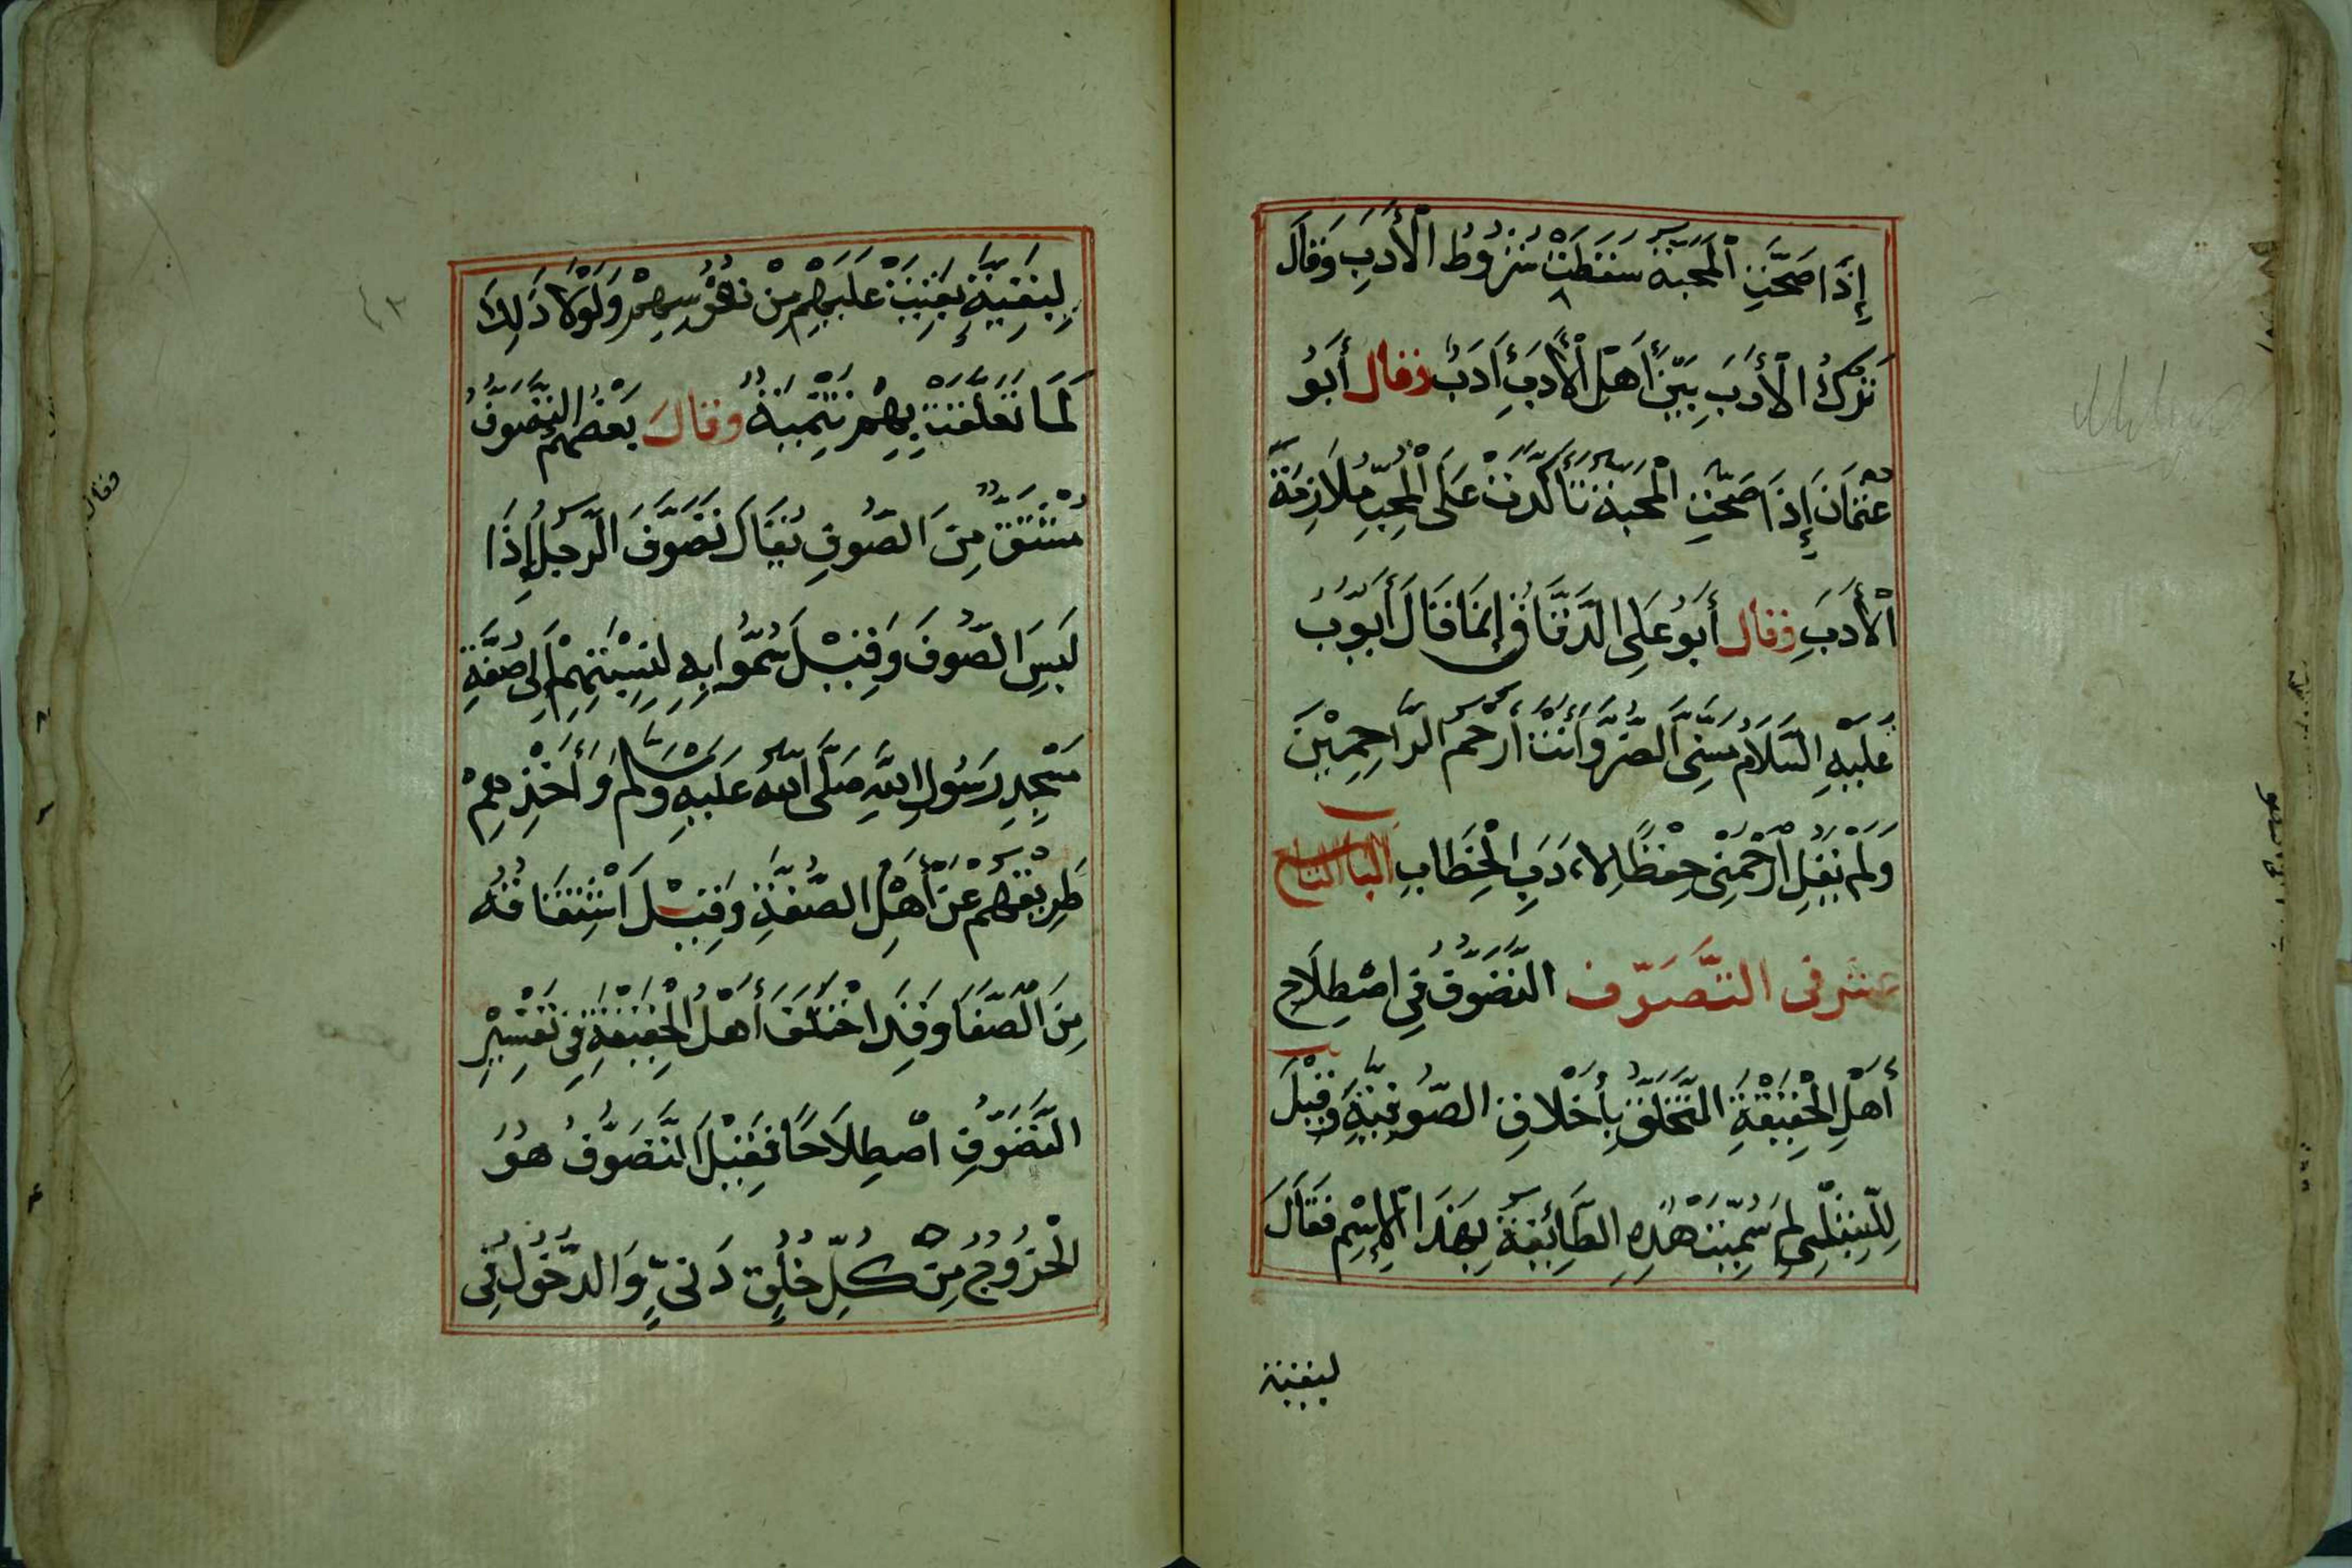 إِذَا صَحَّتِ الْمَحَبَّةُ سَقَطَتْ شُرُوطُ الْأَدَبِ وَقَالَ
تَرْكُ الْأَدَبِ بَيْنَ أَهْلِ الْأَدَبِ أَدَبٌ وقال أَبُو
عُثْمَانَ إِذَا صَحَّتِ الْمَحَبَّةُ تَأَكَّدَتْ عَلَى الْمُحِبِّ مُلَازَمَةُ
الْأَدَبِ وقال أَبُو عَلِى الدَّقَّاقُ إِنَّمَا قَالَ أَيُّوبُ
عَلَيْهِ السَّلَامُ مَسَّنِىَ الضُّرُّ وَأَنْتَ أَرْحَمُ الرَّاحِمِيْنَ
وَلَمْ يَقُلِ ارْحَمْنِى حِفْظًا لِاٰدَبِ الْخِطَابِ الباب التاسع
عشر فى التَّصَوّف التَّصَوُّفُ فِي اصْطِلَاحِ
أَهْلِ الْحَقِيْقَةِ التَّخَلُّقُ بِأَخْلَاقِ الصُّوفِيَّةِ وَقِيْلَ
لِلشِّبْلِي لِمَ سُمِّيَتْ هٰذِهِ الطَّائِفَةُ بِهَذَا الْإِسْمِ فَقَالَ
لبقية
لِبَقِيَّةٍ بَقِيَتْ عَلَيْهِمْ مِنْ نُفُوسِهِمْ وَلَوْلَا ذَلِكَ
لَمَا تَعَلَّقَتْ بِهِمْ تَسْمِيَةٌ وقال بَعْضُهُمْ التَّصَوُّفُ
مُشْتَقٌّ مِنَ الصُّوفِ يُقَالُ تَصَوَّفَ الرَّجُلُ إِذَا
لَبِسَ الصُّوفَ وَقِيْلَ سُمُّوا بِهِ لِنِسْبَتِهِمْ إِلَى صُفَّةِ
مَسْجِدِ رَسُولِ اللَّهِ صَلَّى اللَّهُ عَلَيْهِ وَسَلَّمَ وَأَخْذِهِمْ
طَرِيقَهُمْ عَنْ أَهْلِ الصُّفَّةِ وَقِيْلَ اشْتِقَاقُهُ
مِنَ الصَّفَا وَقَدِ اخْتَلَفَ أَهْلُ الْحَقِيْقَةِ فِى تَفْسِيْرِ
التَّصَوُّفِ اصْطِلَاحًا فَقِيْلَ التَّصَوُّفُ هُوَ
الْخُرُوْجُ مِنْ كُلِّ خُلُقٍ دَنِىٍّ وَالدُّخُوْلُ فِى
فقال